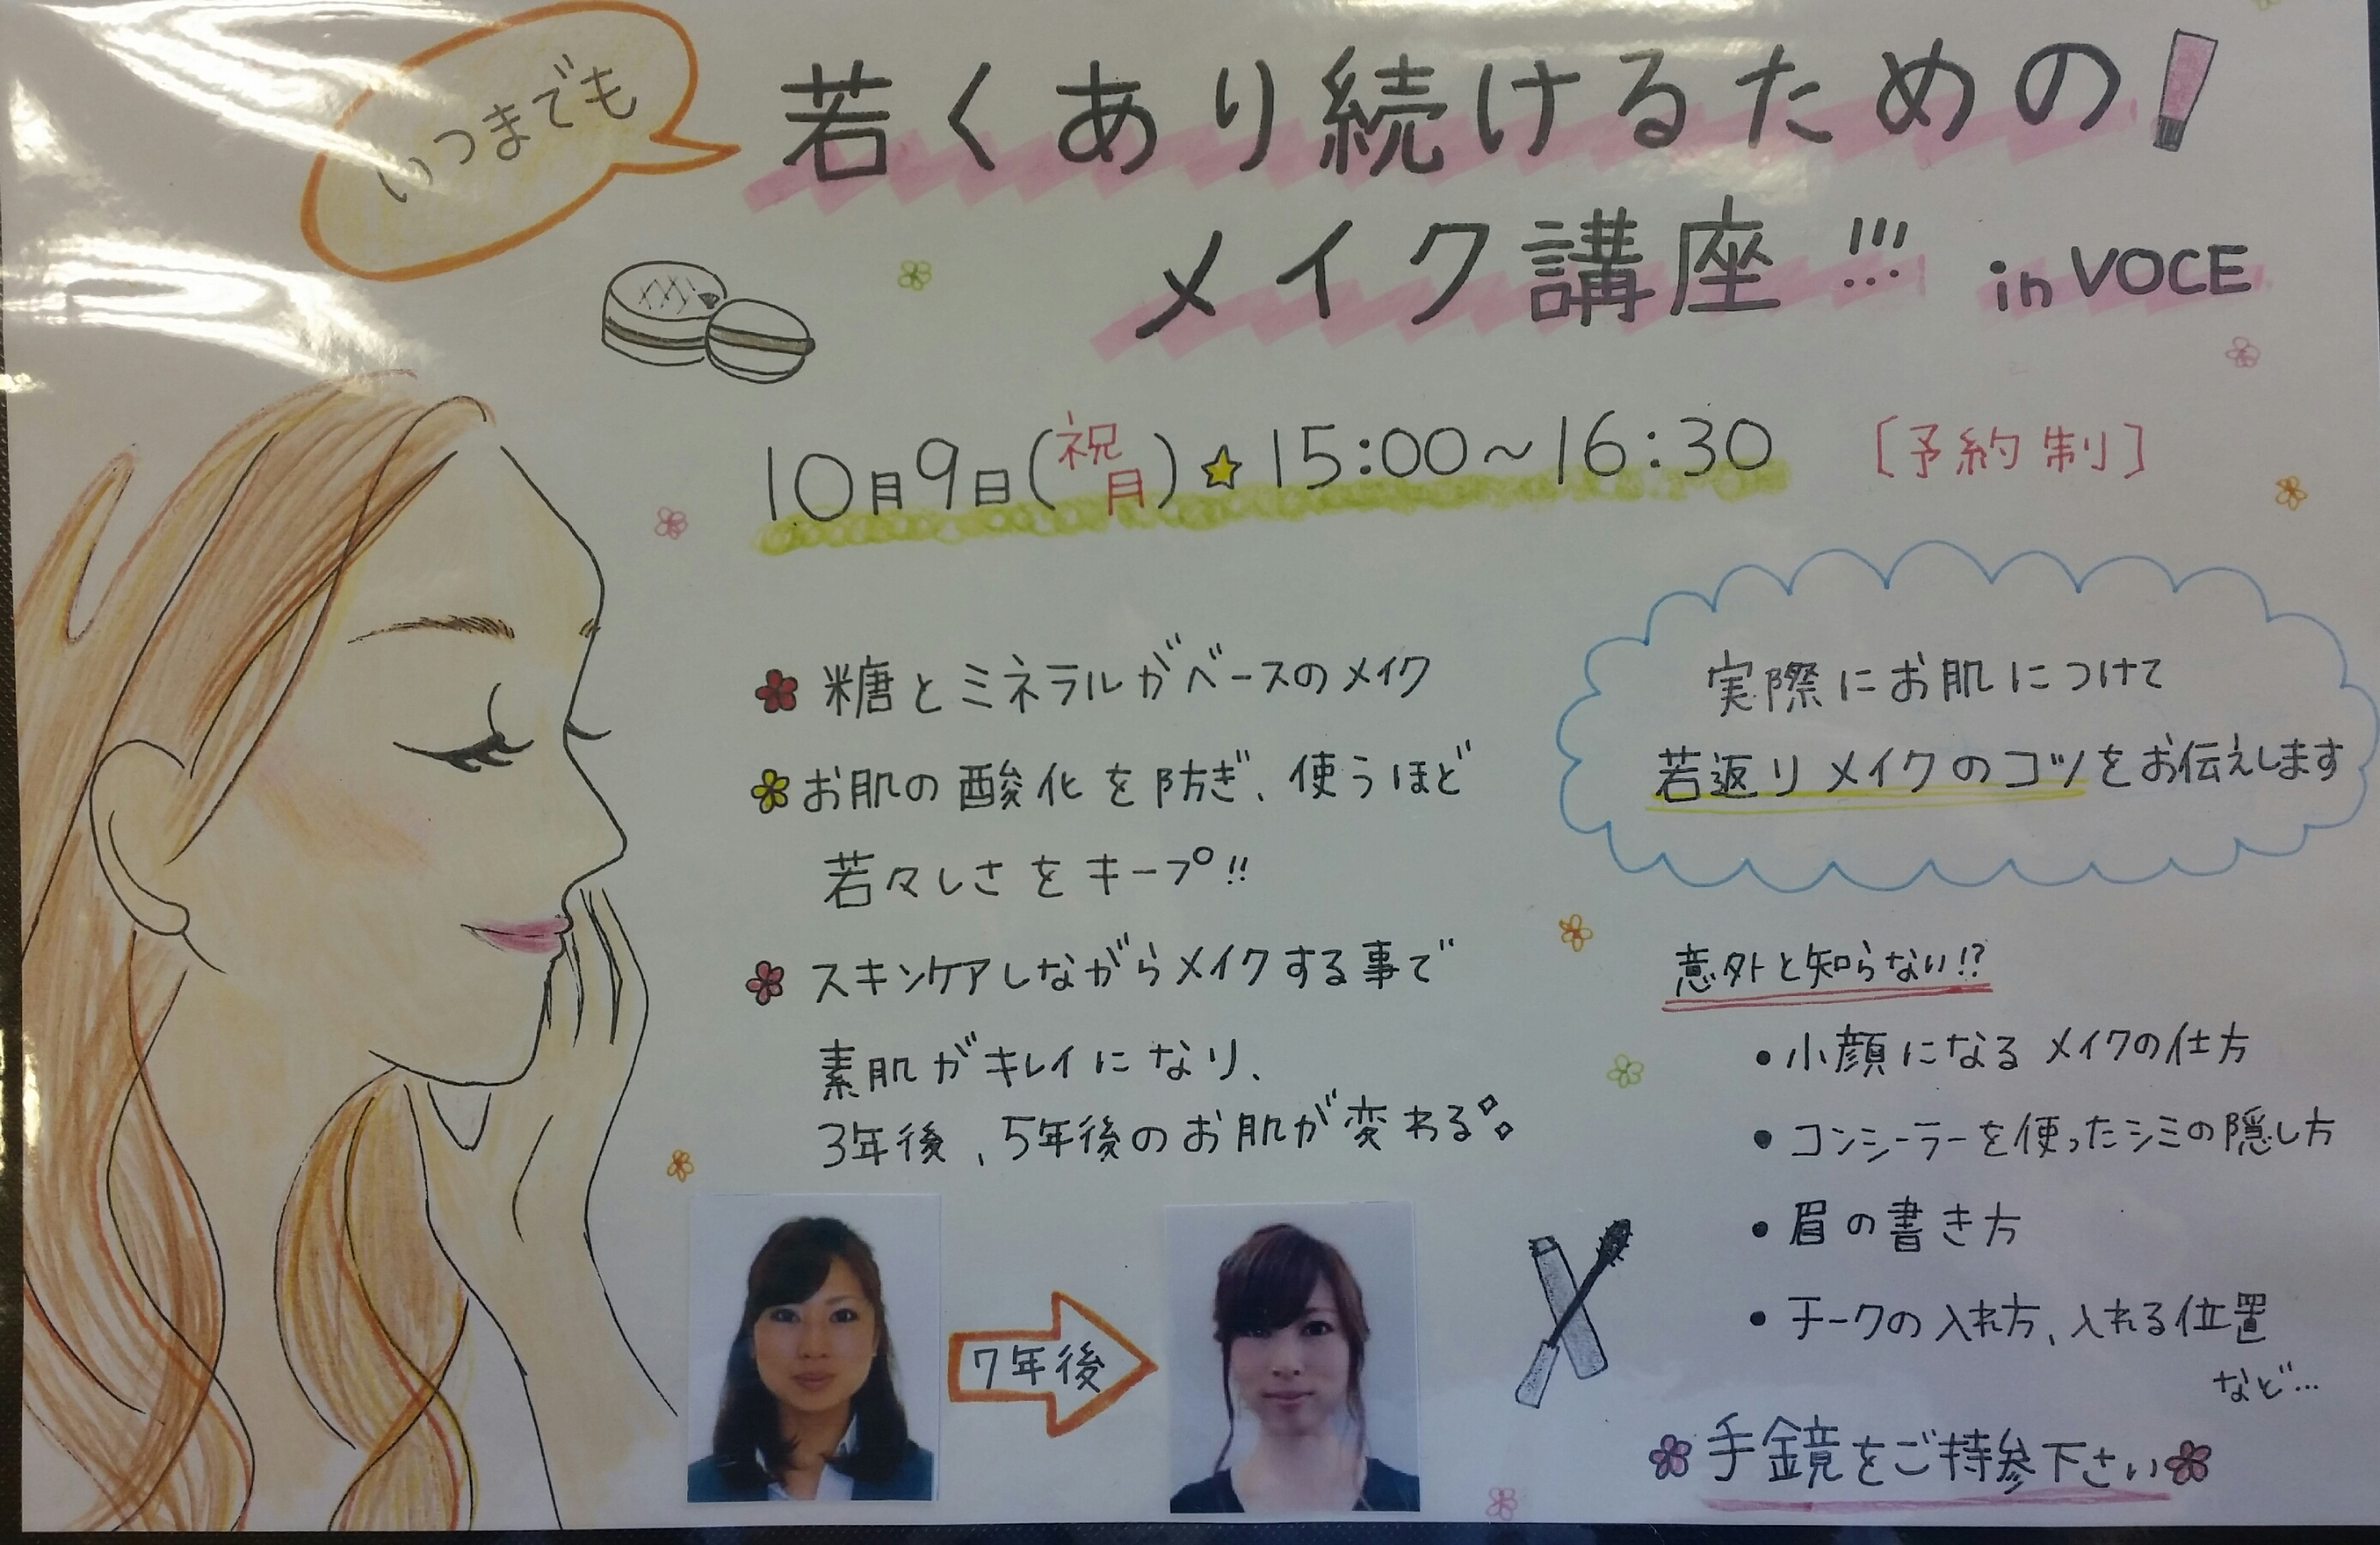 いつまでも
若くあり続けるための
メイク講座!!! in VOCE
10月9日(祝月)☆15:00~16:30 [予約制]
糖とミネラルがベースのメイク
お肌の酸化を防ぎ、使うほど
若々しさをキープ!!
スキンケアしながらメイクする事で
素肌がキレイになり、
3年後、5年後のお肌が変わる
7年後
実際にお肌につけて
若返りメイクのコツをお伝えします
意外と知らない!?
・小顔になるメイクの仕方
・コンシーラーを使ったシミの隠し方
・眉の書き方
・チークの入れ方、入れる位置
など…
手鏡をご持参下さい